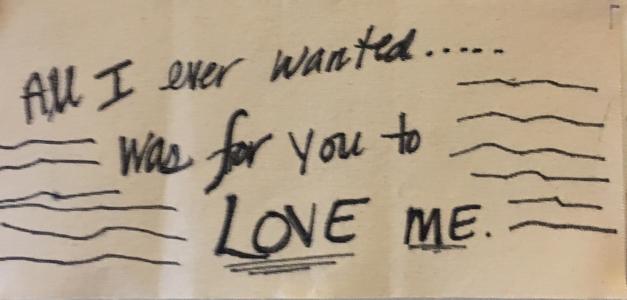 All I ever wanted.....
was for you to
LOVE ME.